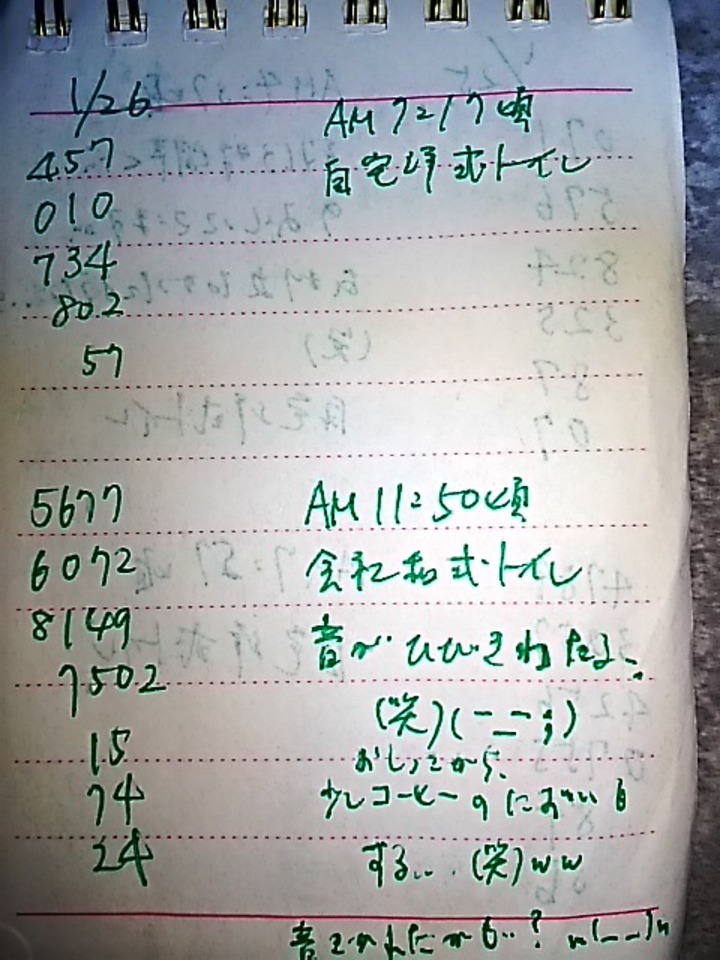 1/26
457 AM 7=17頃
010 自宅洋式トイレ
734
802
57
5677 AM 11=50頃
6072 会社和式トイレ
8149 音がひびきわたる、
7502 (笑)(一二一;)
15 おしっこから、
74 少しコーヒーのにおいも
24 する... (笑)ww
音とかれたかも..? n(_ _)n